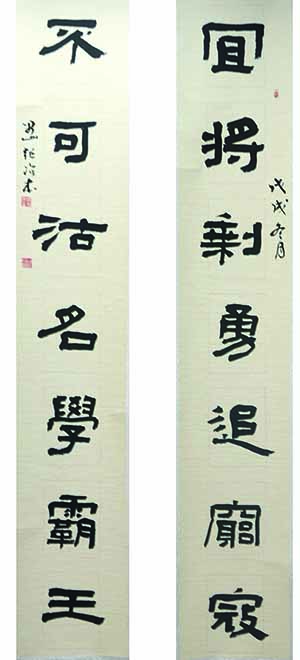 宜将剩勇追窮寇
戊戌冬月
不可沽名學霸王